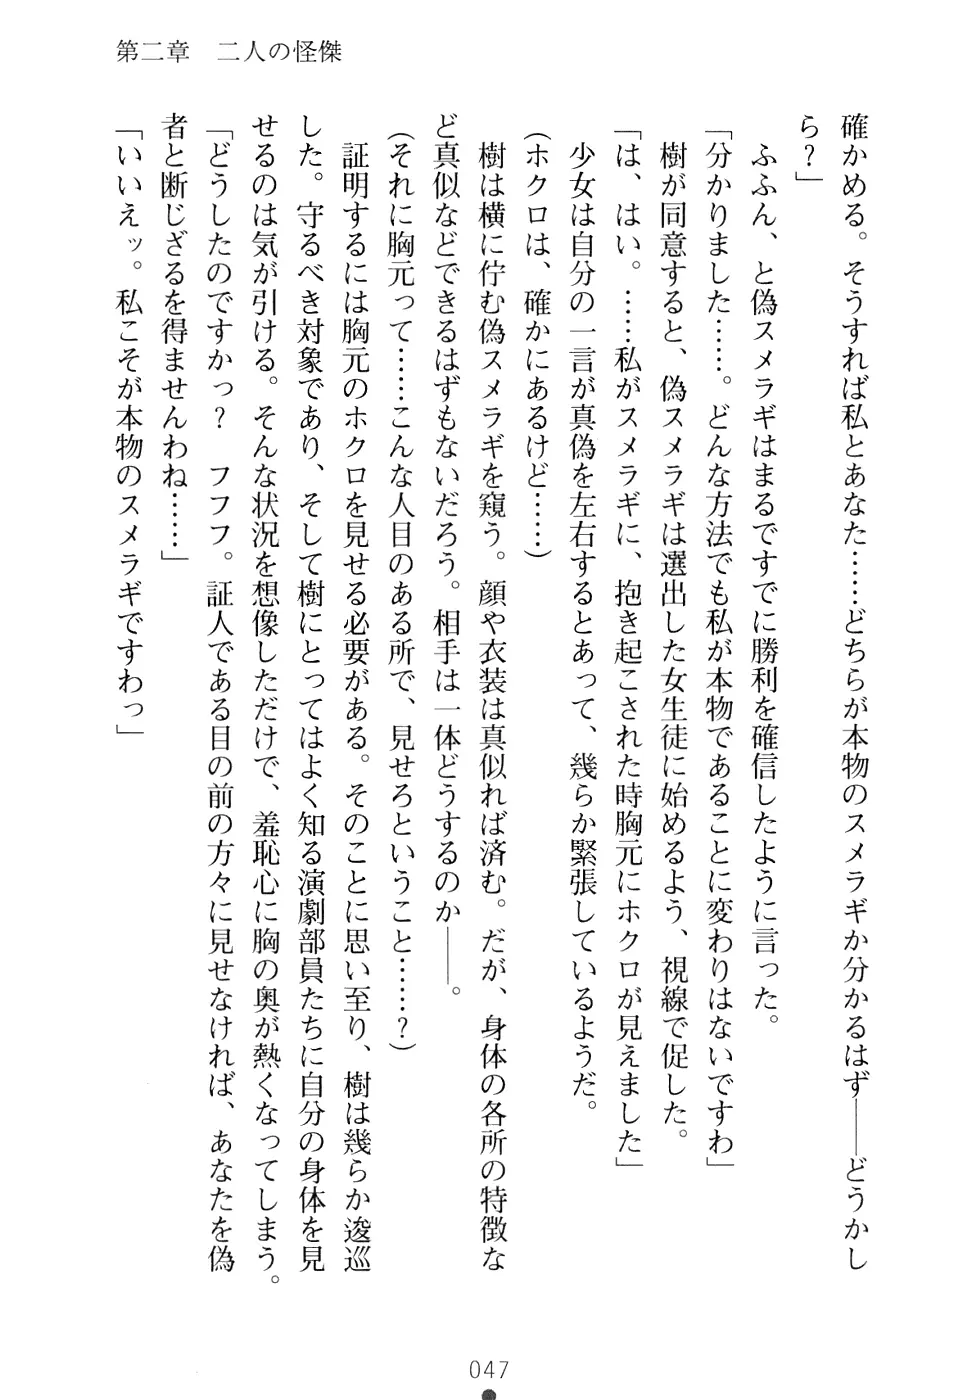 第二章　二人の怪傑
確かめる。そうすれば私とあなた……どちらが本物のスメラギか分かるはず――どうかし
ら？」
　ふふん、と偽スメラギはまるですでに勝利を確信したように言った。
「分かりました……。どんな方法でも私が本物であることに変わりはないですわ」
　樹が同意すると、偽スメラギは選出した女生徒に始めるよう、視線で促した。
「は、はい。……私がスメラギに、抱き起こされた時胸元にホクロが見えました」
　少女は自分の一言が真偽を左右するとあって、幾らか緊張しているようだ。
（ホクロは、確かにあるけど……）
　樹は横に佇む偽スメラギを窺う。顔や衣装は真似れば済む。だが、身体の各所の特徴な
ど真似などできるはずもないだろう。相手は一体どうするのか――。
（それに胸元って……こんな人目のある所で、見せろということ……？）
　証明するには胸元のホクロを見せる必要がある。そのことに思い至り、樹は幾らか逡巡
した。守るべき対象であり、そして樹にとってはよく知る演劇部員たちに自分の身体を見
せるのは気が引ける。そんな状況を想像しただけで、羞恥心に胸の奥が熱くなってしまう。
「どうしたのですかっ？　フフフ。証人である目の前の方々に見せなければ、あなたを偽
者と断じざるを得ませんわね……」
「いいえッ。私こそが本物のスメラギですわっ」
047